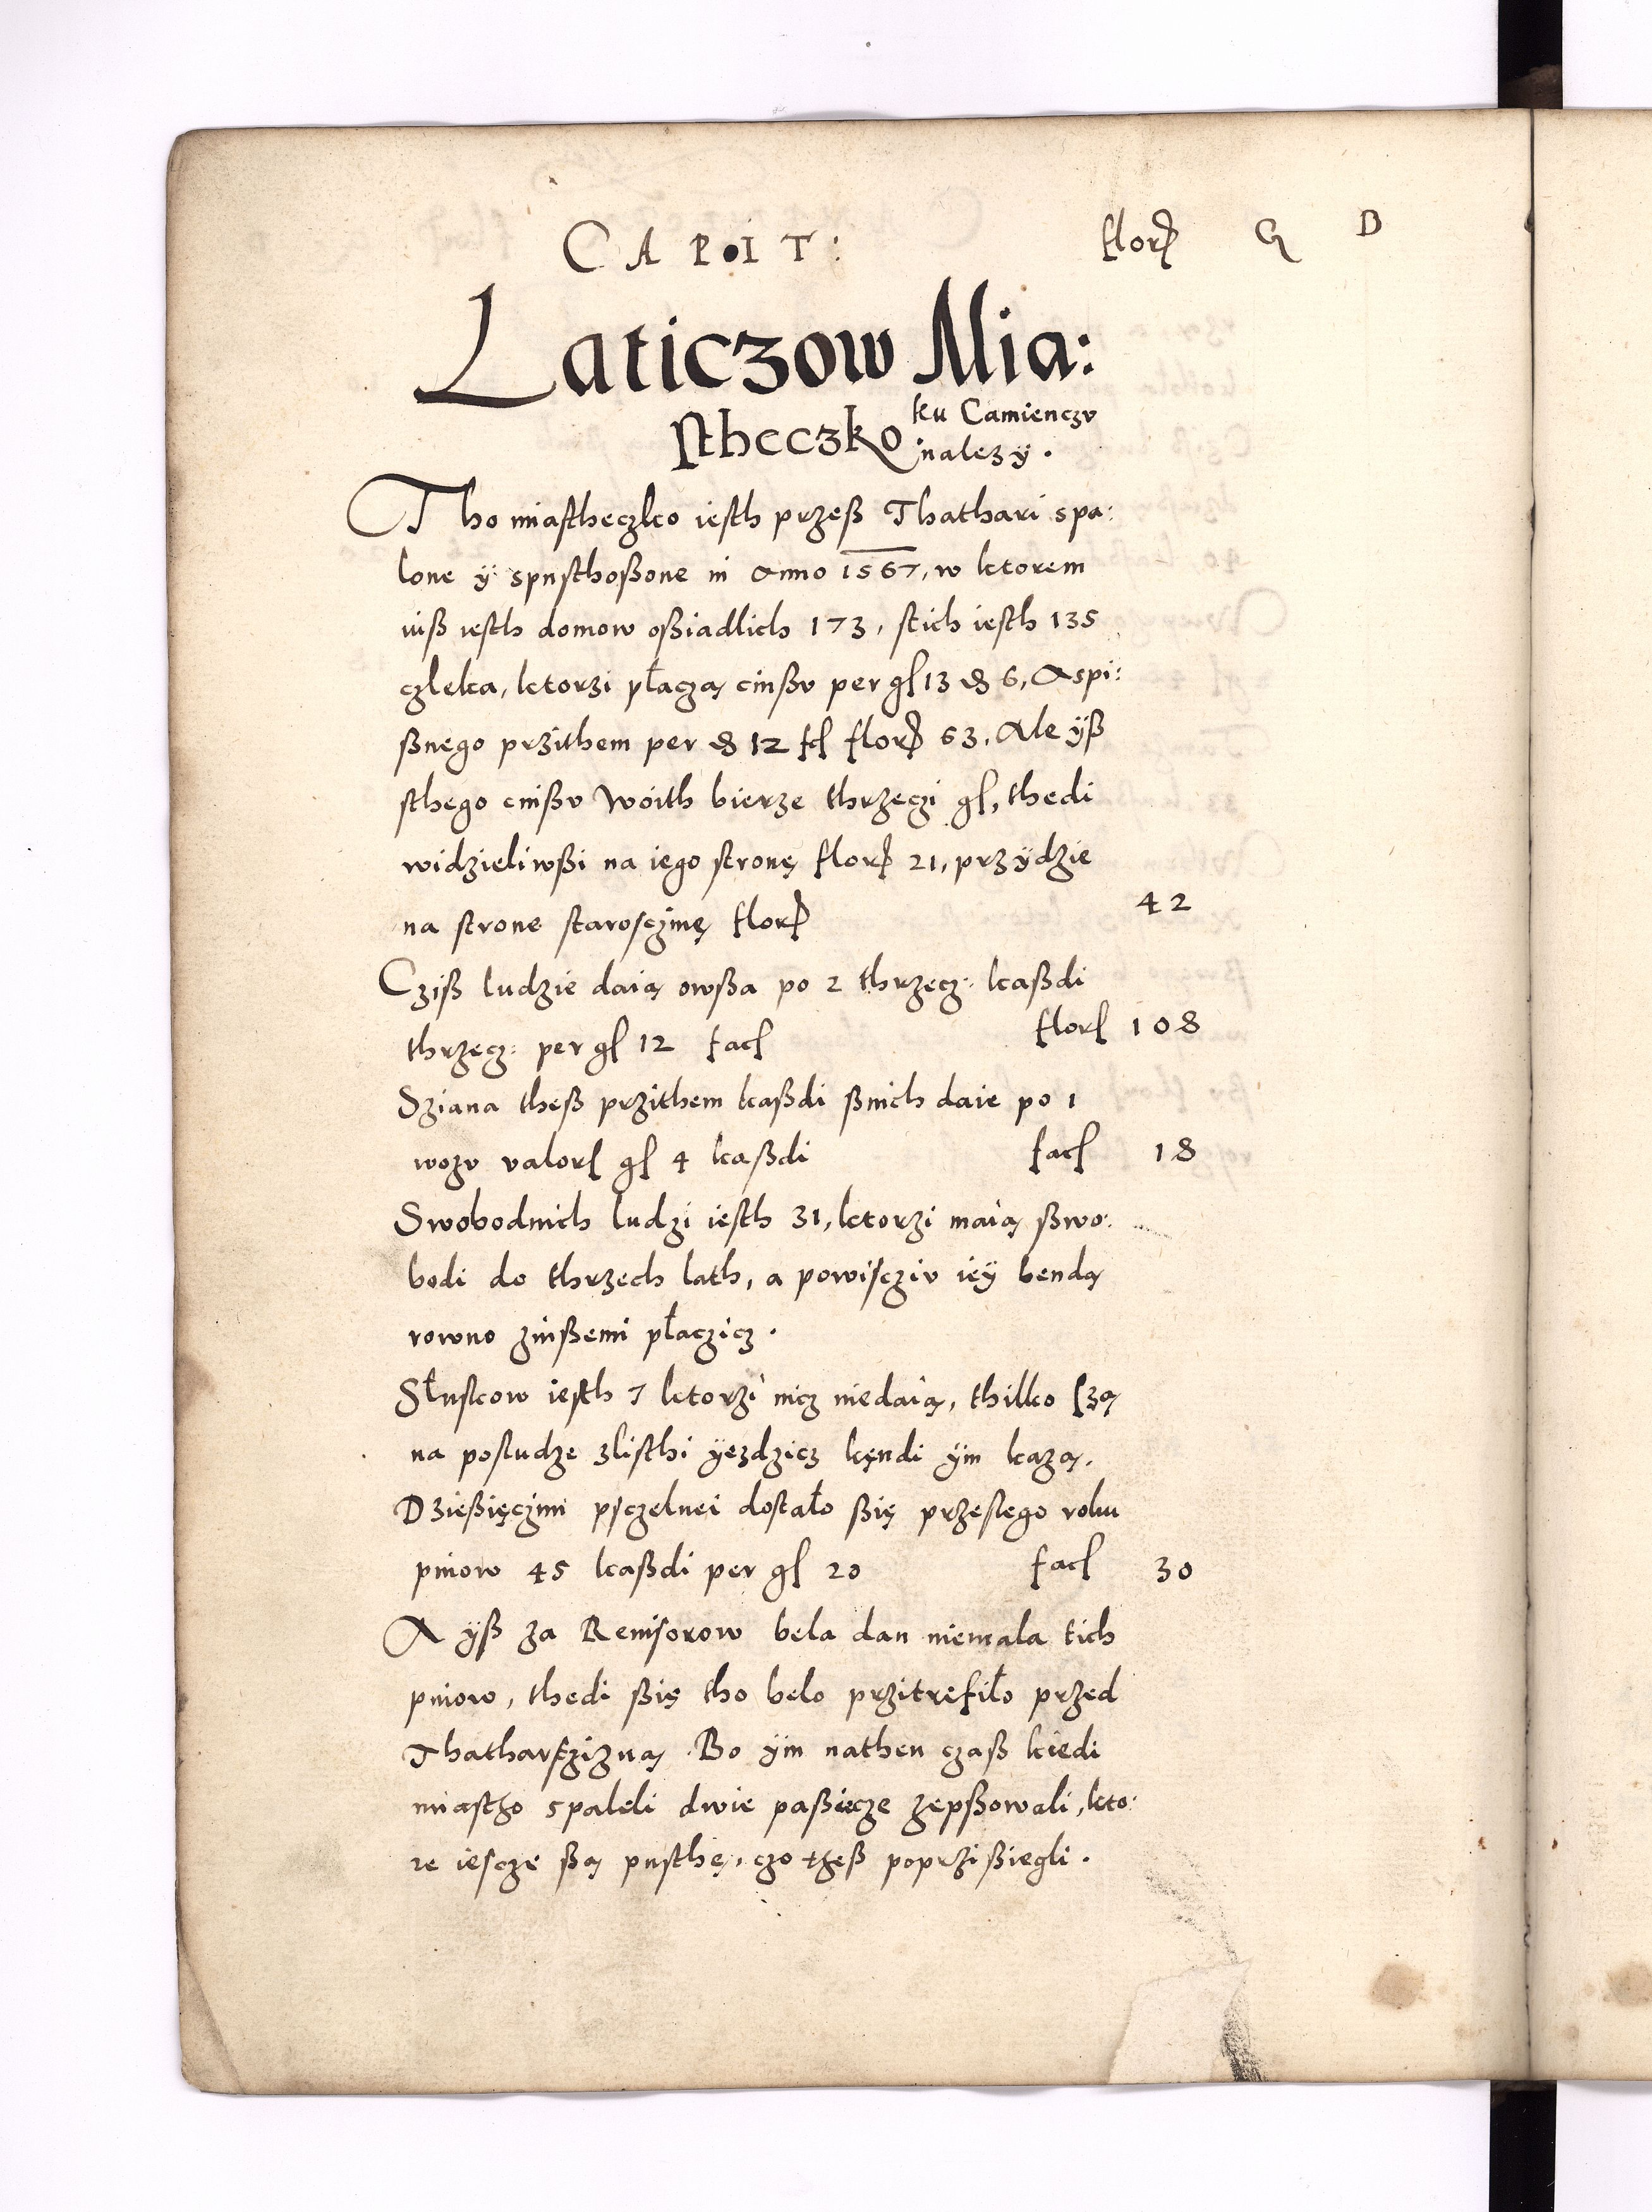 CAPIT: flor G D
Laticzow Mia:
stheczko ku Camienczv
nalezÿ.
Tho miastheczko iesth przeß Thathari spa:
lone ÿ spusthoßone in Anno 1567, w ktorem
iuß iesth domow oßiadlich 173, stich iesth 135
czleka, ktorzi płaczą cinßv per gſ 13 ꝺ 6, A spi:
ßnego przithem per ꝺ 12 fſ flor 63. Ale ÿß
sthego cinßv Woith bierze thrzeczi gſ, thedi
widzieliwßi na iego stronę flor 21, przÿdzie
na strone starosczinę flor 42
Cziß ludzie daią owßa po 2 thrzecz: kaßdi
thrzecz: per gſ 12 facſ florſ 108
Sziana theß przithem kaßdi ßnich daie po 1
wozv valorſ gſ 4 kaßdi facſ 18
Swobodnich ludzi iesth 31, ktorzi maią ßwo:
bodi do thrzech lath, a powiscziv ieÿ bendą
rowno zinßemi płaczicz.
Słuskow iesth 7 ktorzi nicz niedaią, thilko ſzą
na posludze zlisthi ÿezdzicz kęndi ÿm kazą.
Dzießięczini psczelnei dostało ßię przeslego roku
pniow 45 kaßdi per gſ 20 facſ 30
A ÿß za Renisorow bela dan niemala tich
pniow, thedi ßię tho belo przitrefiło przed
Thatharsczizną. Bo ÿm nathen czaß kiedi
miastho spaleli dwie paßiecze zepßowali, kto:
re iescze ßą pusthę, czo theß poprzißiegli.